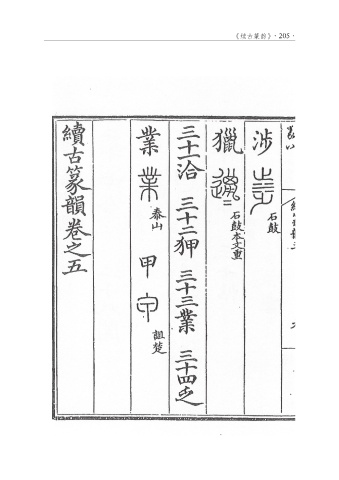 《续古篆韵》·205·
涉 石鼓
獵 石鼓本文重
三十一洽 三十二狎 三十三業 三十四乏
業 泰山 甲 詛楚
續古篆韻卷之五